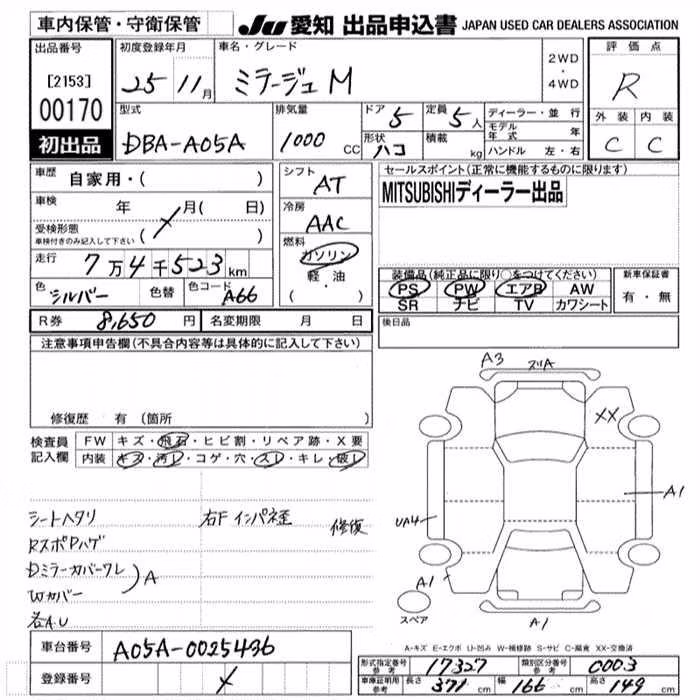 車内保管・守衛保管
JU 愛知 出品申込書 JAPAN USED CAR DEALERS ASSOCIATION
出品番号
[2153]
00170
初出品
初度登録年月
25 11月
車名・グレード
ミラージュM
2WD
・
4WD
評価点
R
外装 内装
C C
型式
DBA-A05A
排気量
1000 CC
ドア 5
定員 5人
形状 ハコ
積載 kg
ディーラー・並行
モデル年式 年
ハンドル 左・右
車歴 自家用・( )
車検 年 月( 日)
受検形態
車検付きのみ記入して下さい ( )
走行 7万4千523km
色 シルバー 色替 色コード A66
シフト AT
冷房 AAC
燃料
ガソリン
軽・油
( ・ )
セールスポイント(正常に機能するものに限ります)
MITSUBISHIディーラー出品
装備品(純正品に限り○をつけてください)
PS PW エアB AW
SR ナビ TV カワシート
新車保証書
有・無
R券 8,650円 名変期限 月 日
後日品
注意事項申告欄(不具合内容等は具体的に記入して下さい)
修復歴 有(箇所 )
検査員 FW キズ・飛石・ヒビ割・リペア跡・X要
記入欄 内装 キズ・汚レ・コゲ・穴・スレ・キレ・破レ
シートヘタリ
RスポPハゲ
Dミラーカバーワレ
Wカバー
A
各A.U
右F インパネ歪 修復
A3
スリA
XX
A1
UA4
A1
A1
スペア
A-キズ E-エクボ U-凹み W-補修跡 S-サビ C-腐食 XX-交換済
車台番号 A05A-0025436
登録番号
形式指定番号 参考 17327 類別区分番号 参考 0003
車庫証明用 参考 長さ 371cm 幅 166cm 高さ 149cm